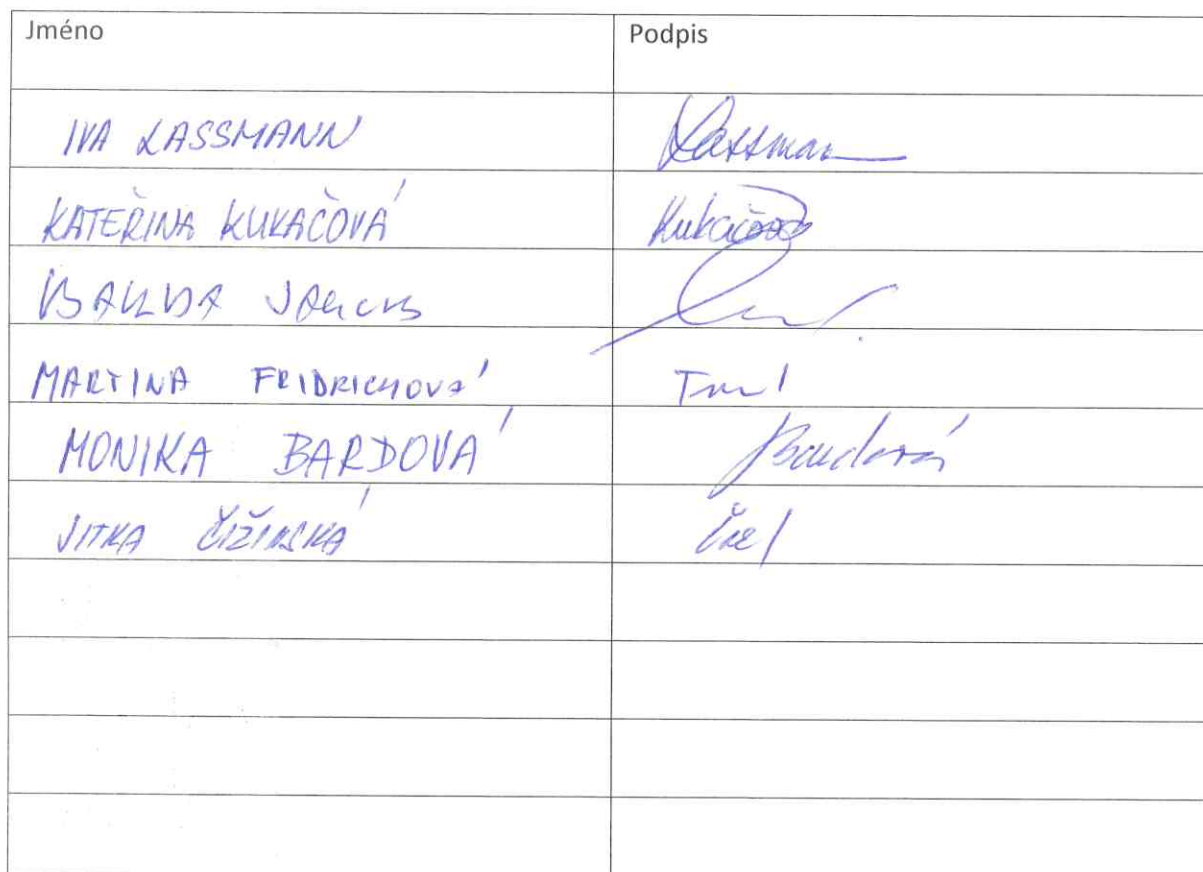 Jméno Podpis
IVA LASSMANN Lassmann
KATEŘINA KUKAČOVÁ Kukačová
MARTINA FRIDRICHOVÁ
MONIKA BARDOVÁ Bardová
JITKA ČIŽINSKÁ